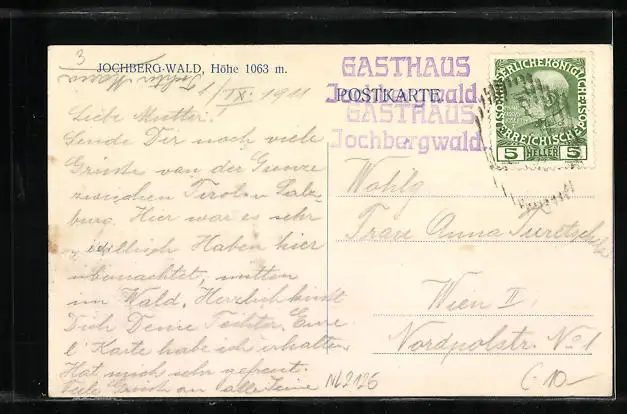 3
JOCHBERG-WALD, Höhe 1063 m.
1/IX. 1911
Liebe Mutter!
Sende Dir noch viele
Grüsse von der Grenze
zwischen Tirol u Salz-
burg. Hier war es sehr
idillisch Haben hier
übernachtet, mitten
im Wald. Herzlich küsst
Dich Deine Tochter. Eure
l. Karte habe ich erhalten
Hat mich sehr gefreut.
Grüsse an alle
GASTHAUS
Jochbergwald.
POSTKARTE.
GASTHAUS
Jochbergwald.
5 HELLER 5
Wohlg
Frau Anna
Wien II.
Nordpolstr. No 1
NL2126
C.10-